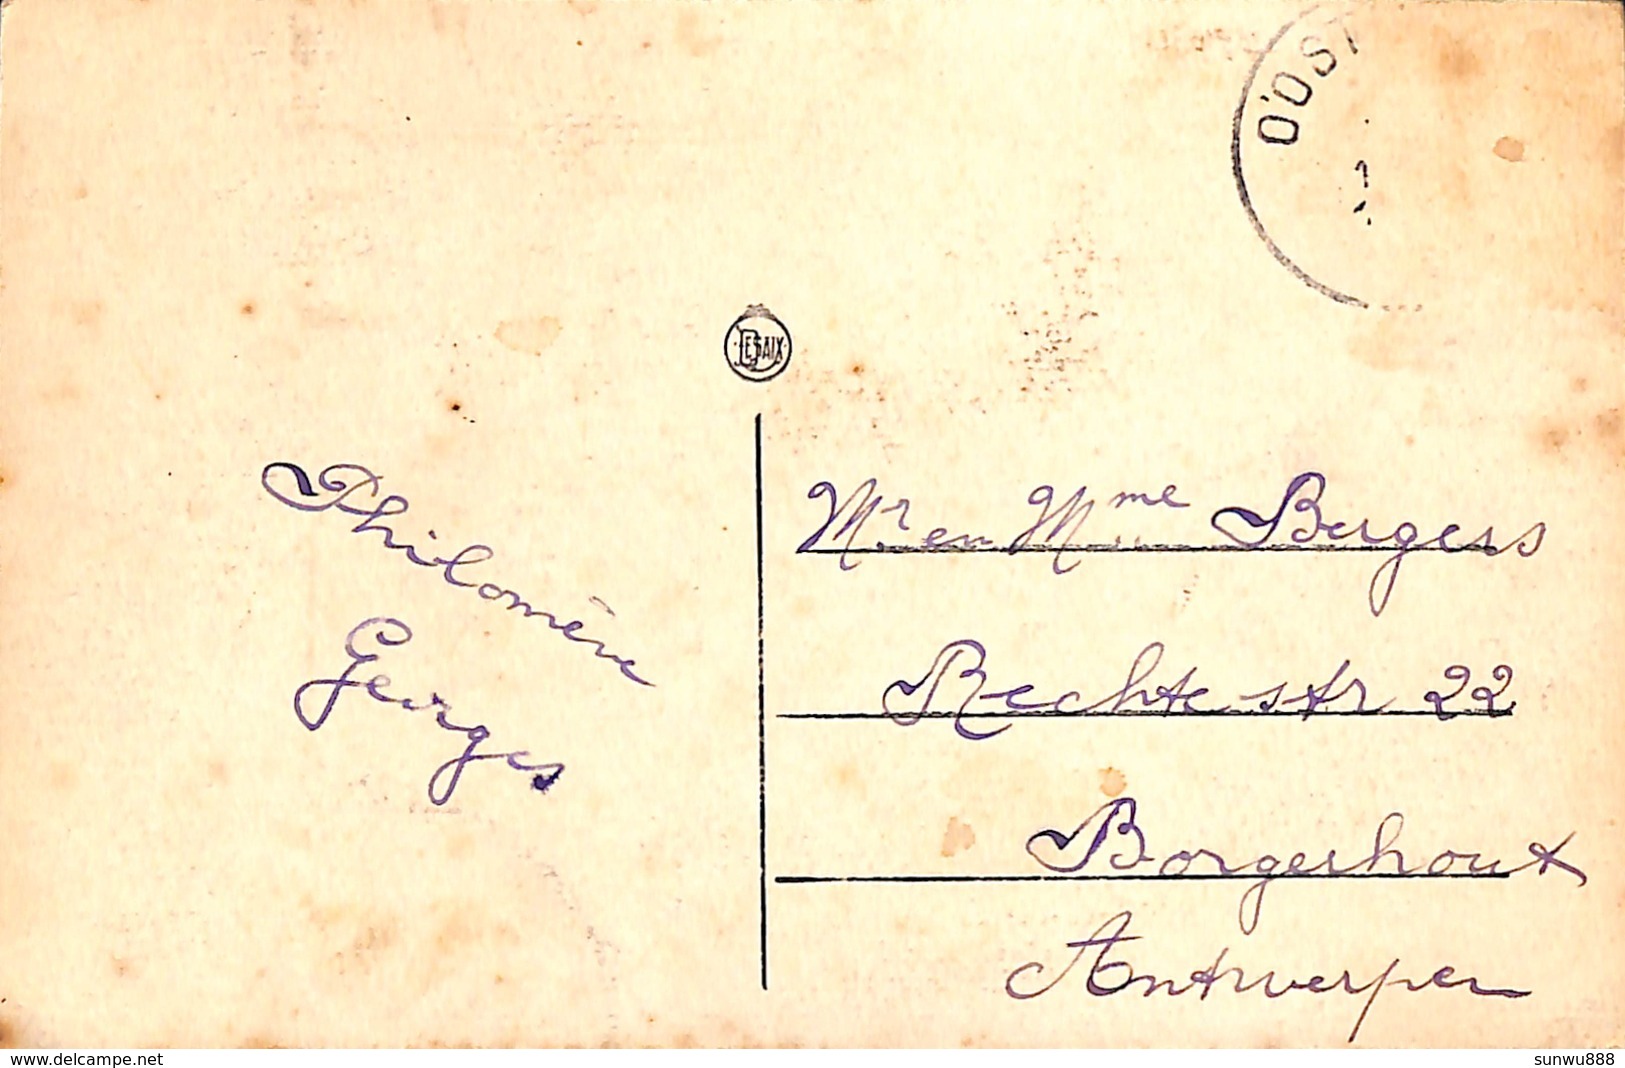 O'OST
DESAIX
Philomène
Georges
Mr en Mme Bergers
Rechtestr 22
Borgerhout
Antwerpen
www.delcampe.net
sunwu888